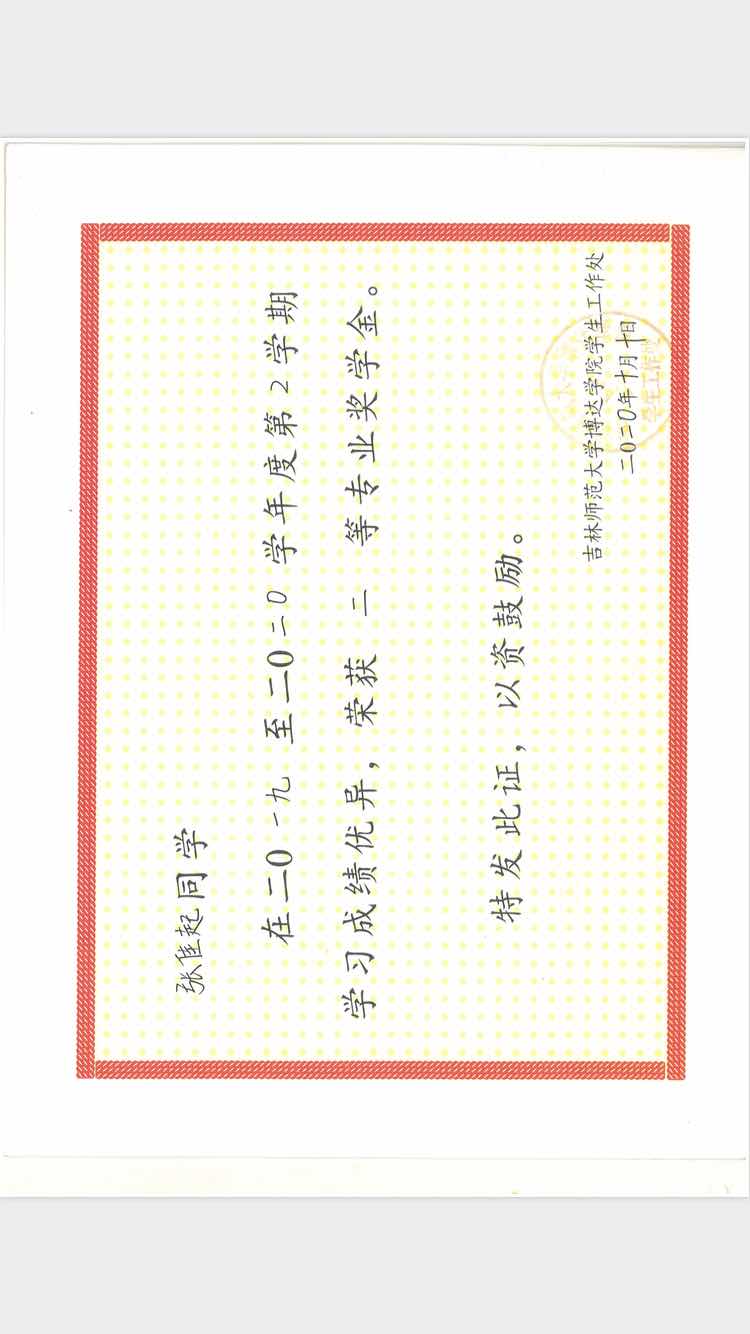 张佳起同学
在二〇一九至二〇二〇学年度第2学期
学习成绩优异，荣获二等专业奖学金。
特发此证，以资鼓励。
吉林师范大学博达学院学生工作处
二〇二〇年十月十日
学生工作处